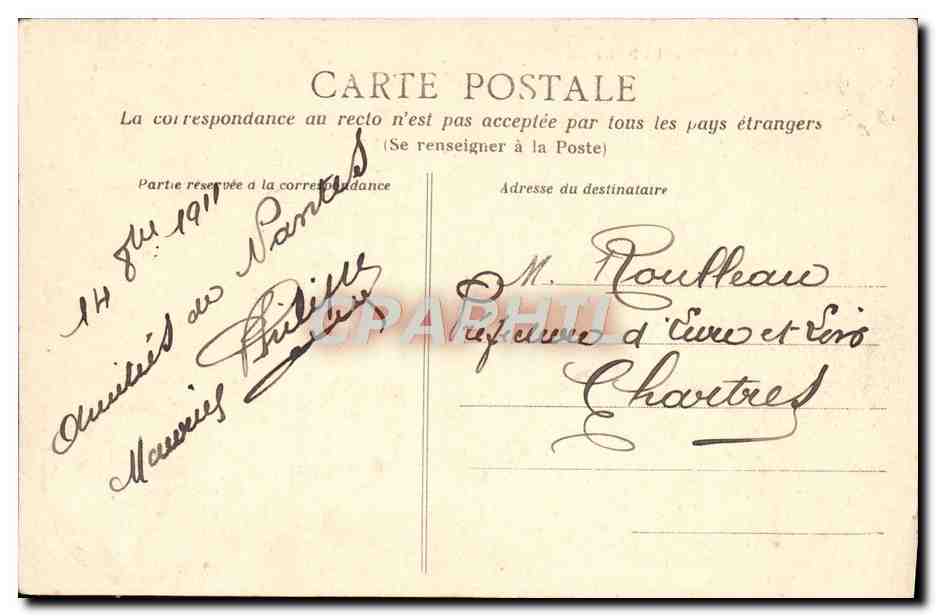 CARTE POSTALE
La correspondance au recto n'est pas acceptée par tous les pays étrangers
(Se renseigner à la Poste)
Partie réservée a la correspondance
14 8bre 1911
Amitiés de Nantes
Maurice Philippe
Adresse du destinataire
M. Roulleau
Préfecture d'Eure et Loir
Chartres
CPAPHIL